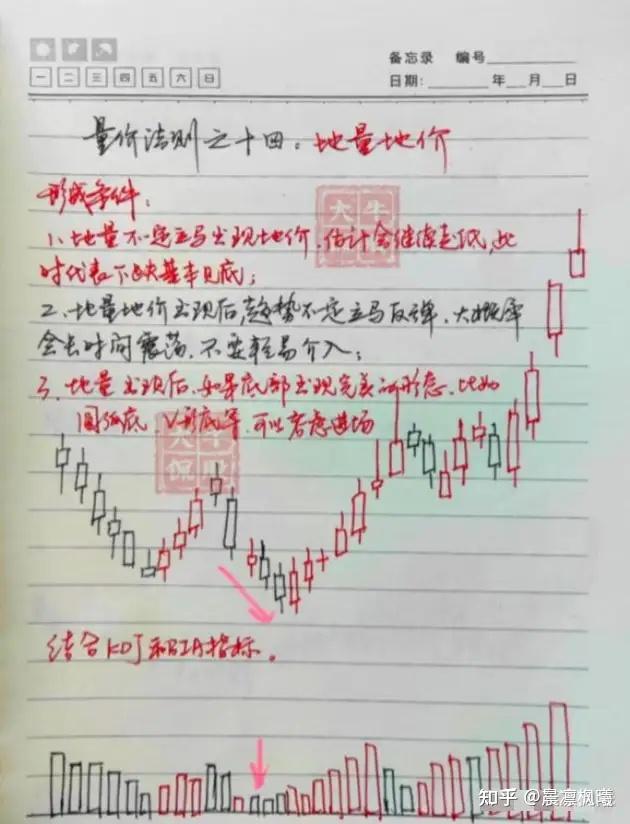 备忘录 编号
一 二 三 四 五 六 日
日期: 年 月 日
量价法则之十四:地量地价
形成条件:
1、地量不一定立马出现地价,估计会继续走低,此
时代表下跌基本见底;
2、地量地价出现后,趋势不一定立马反弹,大概率
会长时间震荡,不要轻易介入;
3、地量出现后,如果底部出现完美的形态,比如
圆弧底、V形底等,可以考虑进场
大牛
大牛
侃
结合KDJ和BIA指标。
知乎 @晨凛枫曦